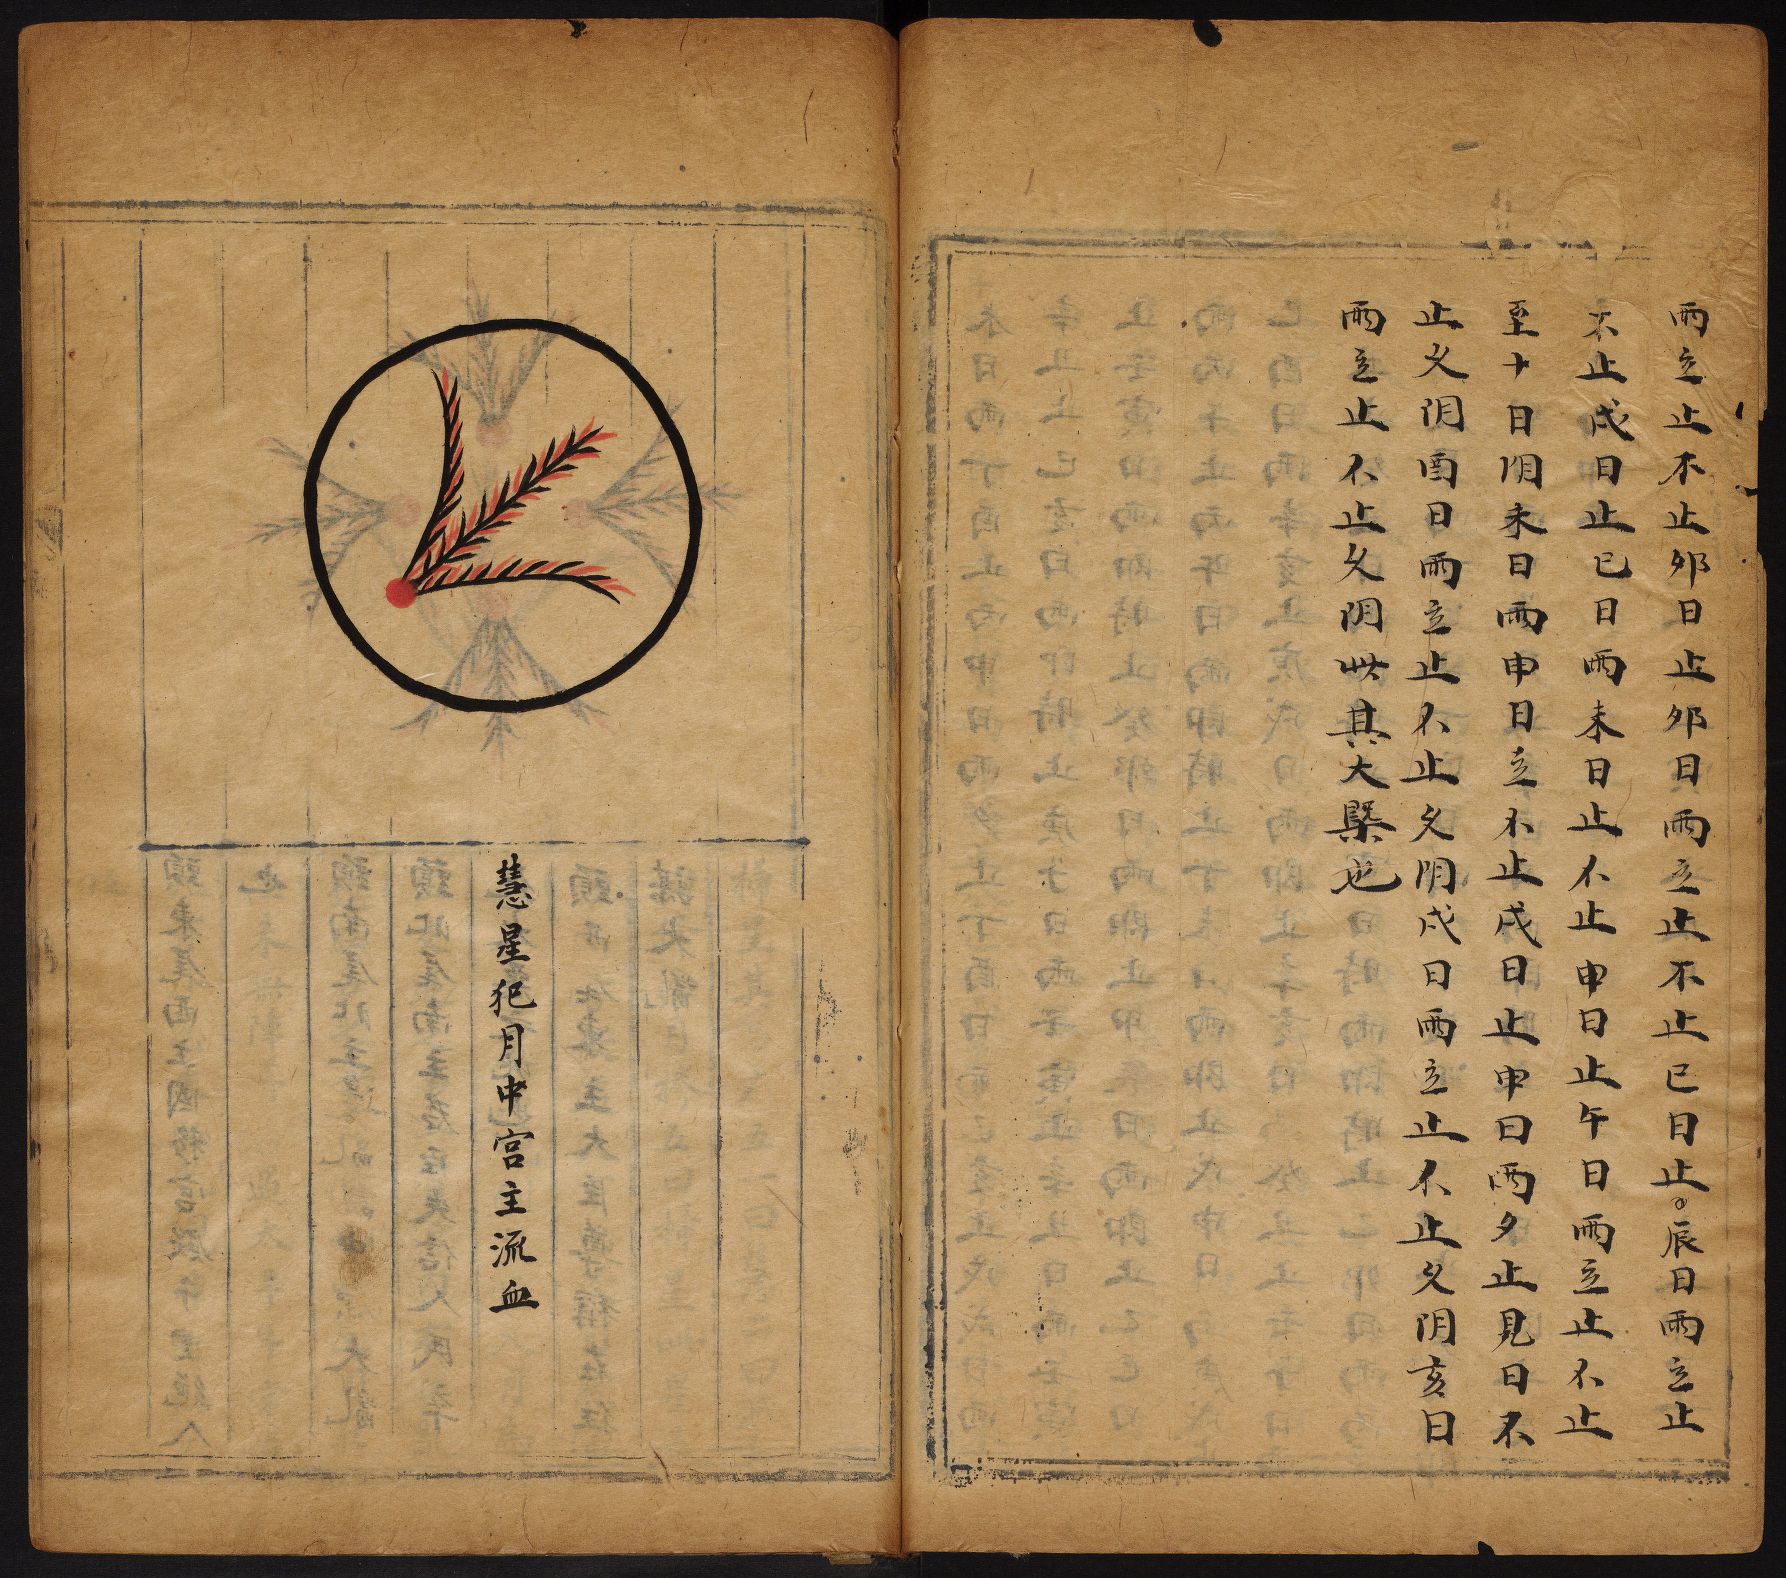 雨立止不止夘日止夘日雨立止不止巳日止。辰日雨立止
不止戌日止巳日雨未日止不止申日止午日雨立止不止
至十日阴未日雨申日立不止戌日止申日雨夕止見日不
止乂阴酉日雨立止不止乂阴戌日雨立止不止乂阴亥日
雨立止不止乂阴此其大槩也
慧星犯月中宫主流血